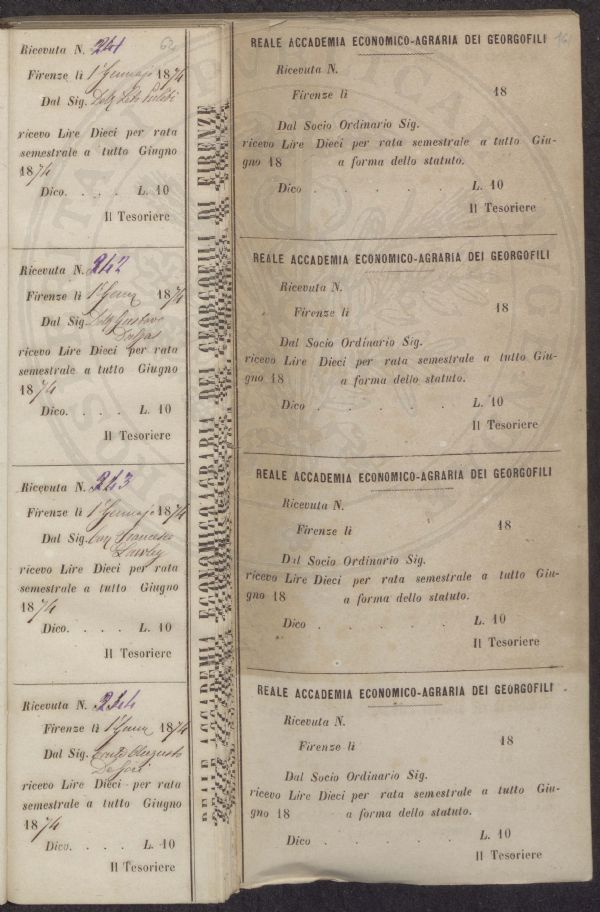 Ricevuta N. 241
62
Firenze li 1° Gennajo 1874
Dal Sig. Dott.
ricevo Lire Dieci per rata
semestrale a tutto Giugno
1874
Dico. . . . L. 10
Il Tesoriere
Ricevuta N. 242
Firenze li 1° Genn 1874
Dal Sig. Dott Gustavo
ricevo Lire Dieci per rata
semestrale a tutto Giugno
1874
Dico. . . . L. 10
Il Tesoriere
Ricevuta N. 243
Firenze li 1° Gennajo 1874
Dal Sig. Francesco
ricevo Lire Dieci per rata
semestrale a tutto Giugno
1874
Dico. . . . L. 10
Il Tesoriere
Ricevuta N. 244
Firenze li 1° Genn 1874
Dal Sig. Conte Augusto
ricevo Lire Dieci per rata
semestrale a tutto Giugno
1874
Dico. . . . L. 10
Il Tesoriere
REALE ACCADEMIA ECONOMICO-AGRARIA DEI GEORGOFILI DI FIRENZE
REALE ACCADEMIA ECONOMICO-AGRARIA DEI GEORGOFILI
Ricevuta N.
Firenze li 18
Dal Socio Ordinario Sig.
ricevo Lire Dieci per rata semestrale a tutto Giu-
gno 18 a forma dello statuto.
Dico . . . . . L. 10
Il Tesoriere
REALE ACCADEMIA ECONOMICO-AGRARIA DEI GEORGOFILI
Ricevuta N.
Firenze li 18
Dal Socio Ordinario Sig.
ricevo Lire Dieci per rata semestrale a tutto Giu-
gno 18 a forma dello statuto.
Dico . . . . . L. 10
Il Tesoriere
REALE ACCADEMIA ECONOMICO-AGRARIA DEI GEORGOFILI
Ricevuta N.
Firenze li 18
Dal Socio Ordinario Sig.
ricevo Lire Dieci per rata semestrale a tutto Giu-
gno 18 a forma dello statuto.
Dico . . . . . L. 10
Il Tesoriere
REALE ACCADEMIA ECONOMICO-AGRARIA DEI GEORGOFILI
Ricevuta N.
Firenze li 18
Dal Socio Ordinario Sig.
ricevo Lire Dieci per rata semestrale a tutto Giu-
gno 18 a forma dello statuto.
Dico . . . . . L. 10
Il Tesoriere